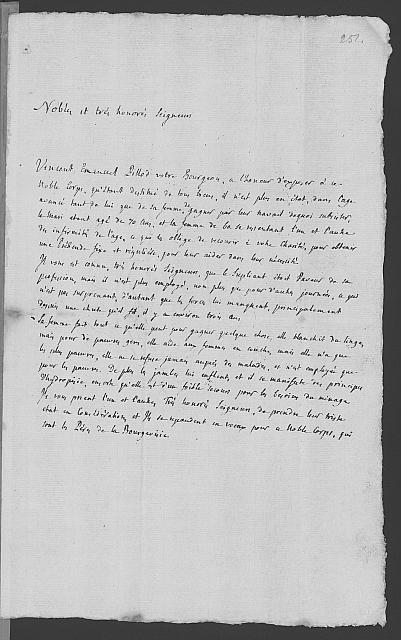 251.
Nobles et très honorés Seigneurs
Vincent Emanuel Pillod votre Bourgeois, a l'honneur d'exposer à ce
Noble Corps, qu'étant destitué de tous biens, il n'est plus en état, dans l'age
avancé tant de lui que de sa femme, de gagner par leur travail dequoi subsister
le mari etant agé de 70 ans, et la femme de 60. se ressentant l'un et l'autre
des infirmités de l'age, ce qui les oblige de recourir à votre Charité, pour obtenir
une Prebende fixe et réguliére, pour leur aider dans leur nécessité.
Il vous est connu, très honorés Seigneurs, que le Supliant étoit Paveur de sa
profession, mais il n'est plus employé, non plus que pour d'autres journées, ce qui
n'est pas surprenant d'autant que les forces lui manquent, principalement
depuis une chute qu'il fit, il y a environ trois ans.
Sa femme fait tout ce qu'elle peut pour gagner quelque chose, elle blanchit du linge,
mais pour de pauvres gens, elle aide aux femmes en couches, mais elle n'a que
les plus pauvres, elle ne se refuse jamais auprès des malades, et n'est employée que
pour les pauvres. De plus les jambes lui enflent, et il se manifeste des principes
d'hydropisie, ensorte qu'elle est d'un foible secours pour les besoins du ménage
Ils vous prient l'un et l'autre, Très honorés Seigneurs, de prendre leur triste
etat en Considération, et Ils se repandent en voeux pour ce Noble Corps, qui
sont les Pères de la Bourgeoisie